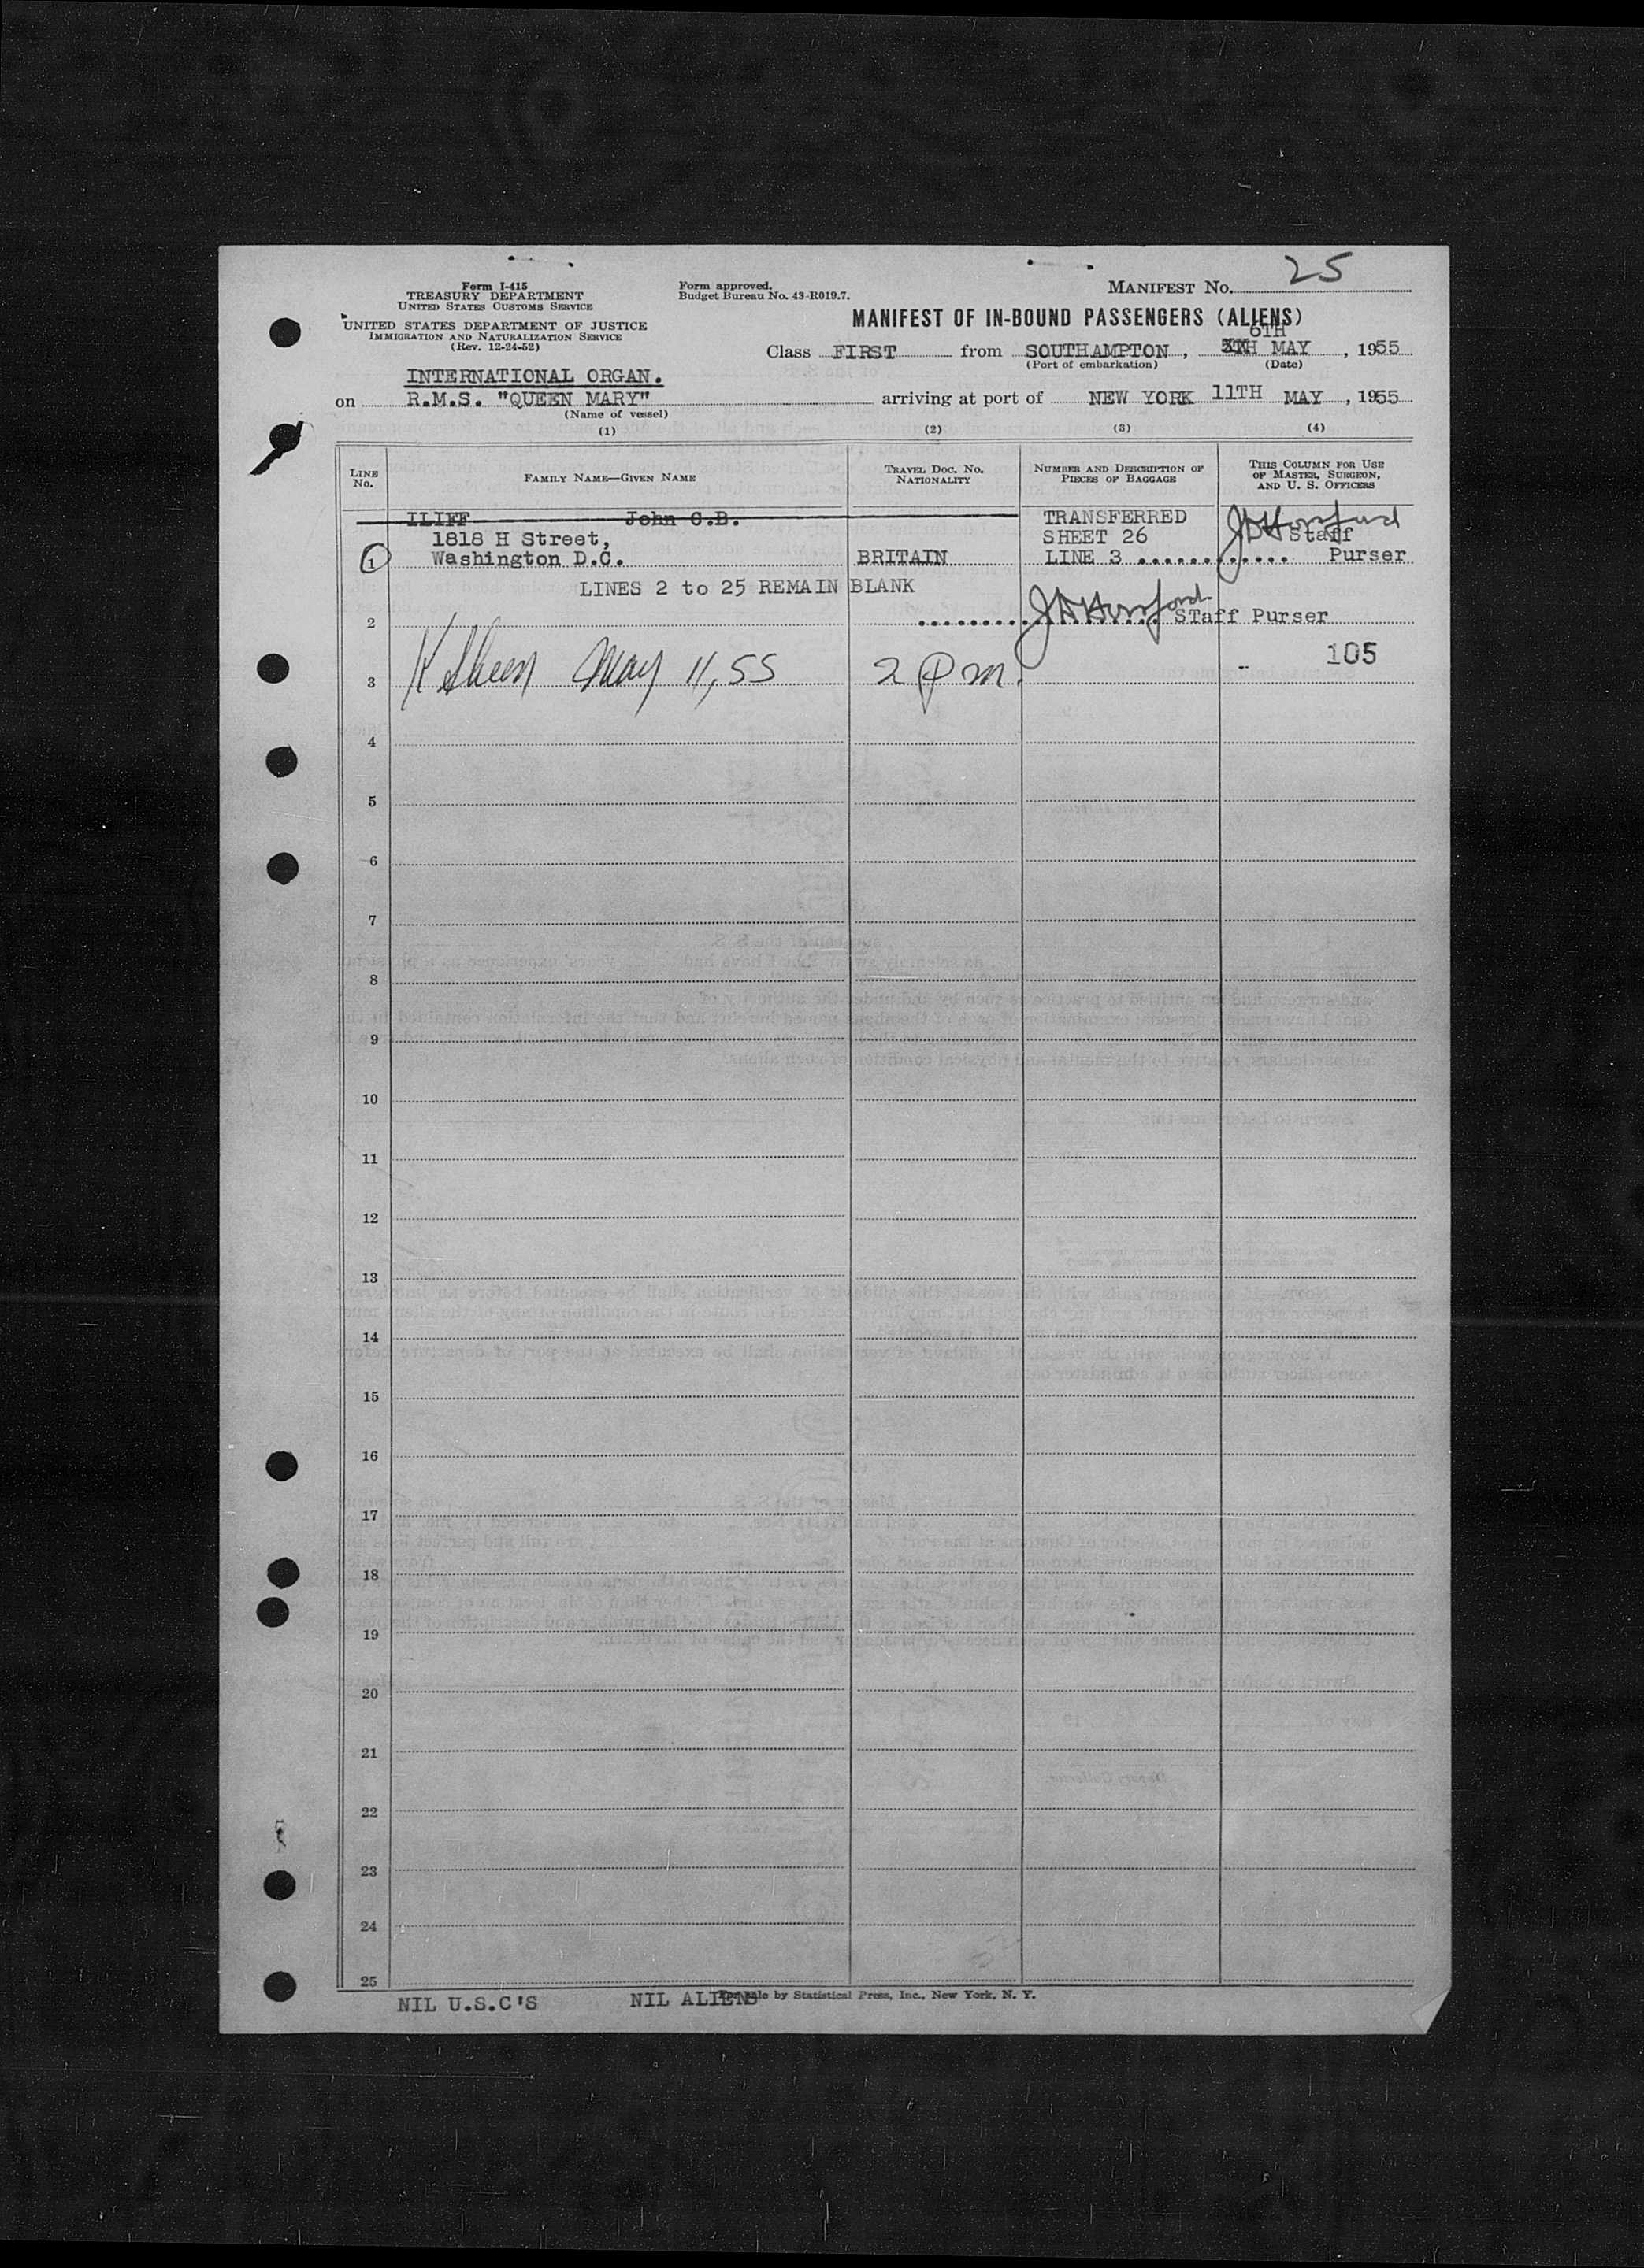 Form I-415
TREASURY DEPARTMENT
UNITED STATES CUSTOMS SERVICE
UNITED STATES DEPARTMENT OF JUSTICE
IMMIGRATION AND NATURALIZATION SERVICE
(Rev. 12-24-52)
Form approved.
Budget Bureau No. 43-R019.7.
MANIFEST NO. 25
MANIFEST OF IN-BOUND PASSENGERS (ALIENS)
6TH
Class FIRST from SOUTHAMPTON, MAY, 1955
(Port of embarkation) (Date)
INTERNATIONAL ORGAN.
on R.M.S. "QUEEN MARY" arriving at port of NEW YORK 11TH MAY, 1955
(Name of vessel)
(1) (2) (3) (4)
LINE No. FAMILY NAME—GIVEN NAME TRAVEL DOC. NO. NATIONALITY NUMBER AND DESCRIPTION OF PIECES OF BAGGAGE THIS COLUMN FOR USE OF MASTER, SURGEON, AND U. S. OFFICERS
ILIFF John C.B. TRANSFERRED
1818 H Street, SHEET 26 Staff
1 Washington D.C. BRITAIN LINE 3 ............ Purser
LINES 2 to 25 REMAIN BLANK
2 STaff Purser
105
3 May 11, 55 2 pm.
4
5
6
7
8
9
10
11
12
13
14
15
16
17
18
19
20
21
22
23
24
25
NIL U.S.C'S NIL ALIENS sale by Statistical Press, Inc., New York, N. Y.